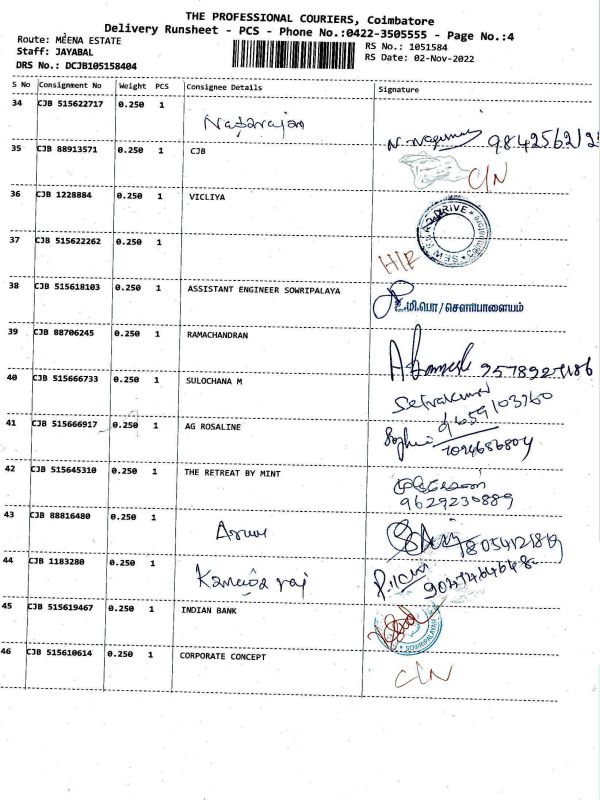 THE PROFESSIONAL COURIERS, Coimbatore
Delivery Runsheet - PCS - Phone No.:0422-3505555 - Page No.:4
Route: MEENA ESTATE
RS No.: 1051584
Staff: JAYABAL
RS Date: 02-Nov-2022
DRS No.: DCJB105158404
S No Consignment No Weight PCS Consignee Details Signature
34 CJB 515622717 0.250 1 Natarajan
35 CJB 88913571 0.250 1 CJB C/N
36 CJB 1228884 0.250 1 VICLIYA
37 CJB 515622262 0.250 1
38 CJB 515618103 0.250 1 ASSISTANT ENGINEER SOWRIPALAYA உ.மி.பொ/சௌரிபாளையம்
39 CJB 88706245 0.250 1 RAMACHANDRAN
40 CJB 515666733 0.250 1 SULOCHANA M Selvakumar
41 CJB 515666917 0.250 1 AG ROSALINE
42 CJB 515645310 0.250 1 THE RETREAT BY MINT
9629230889
43 CJB 88816480 0.250 1
44 CJB 1183280 0.250 1
45 CJB 515619467 0.250 1 INDIAN BANK SOWRIPALAYAM
46 CJB 515610614 0.250 1 CORPORATE CONCEPT C/N